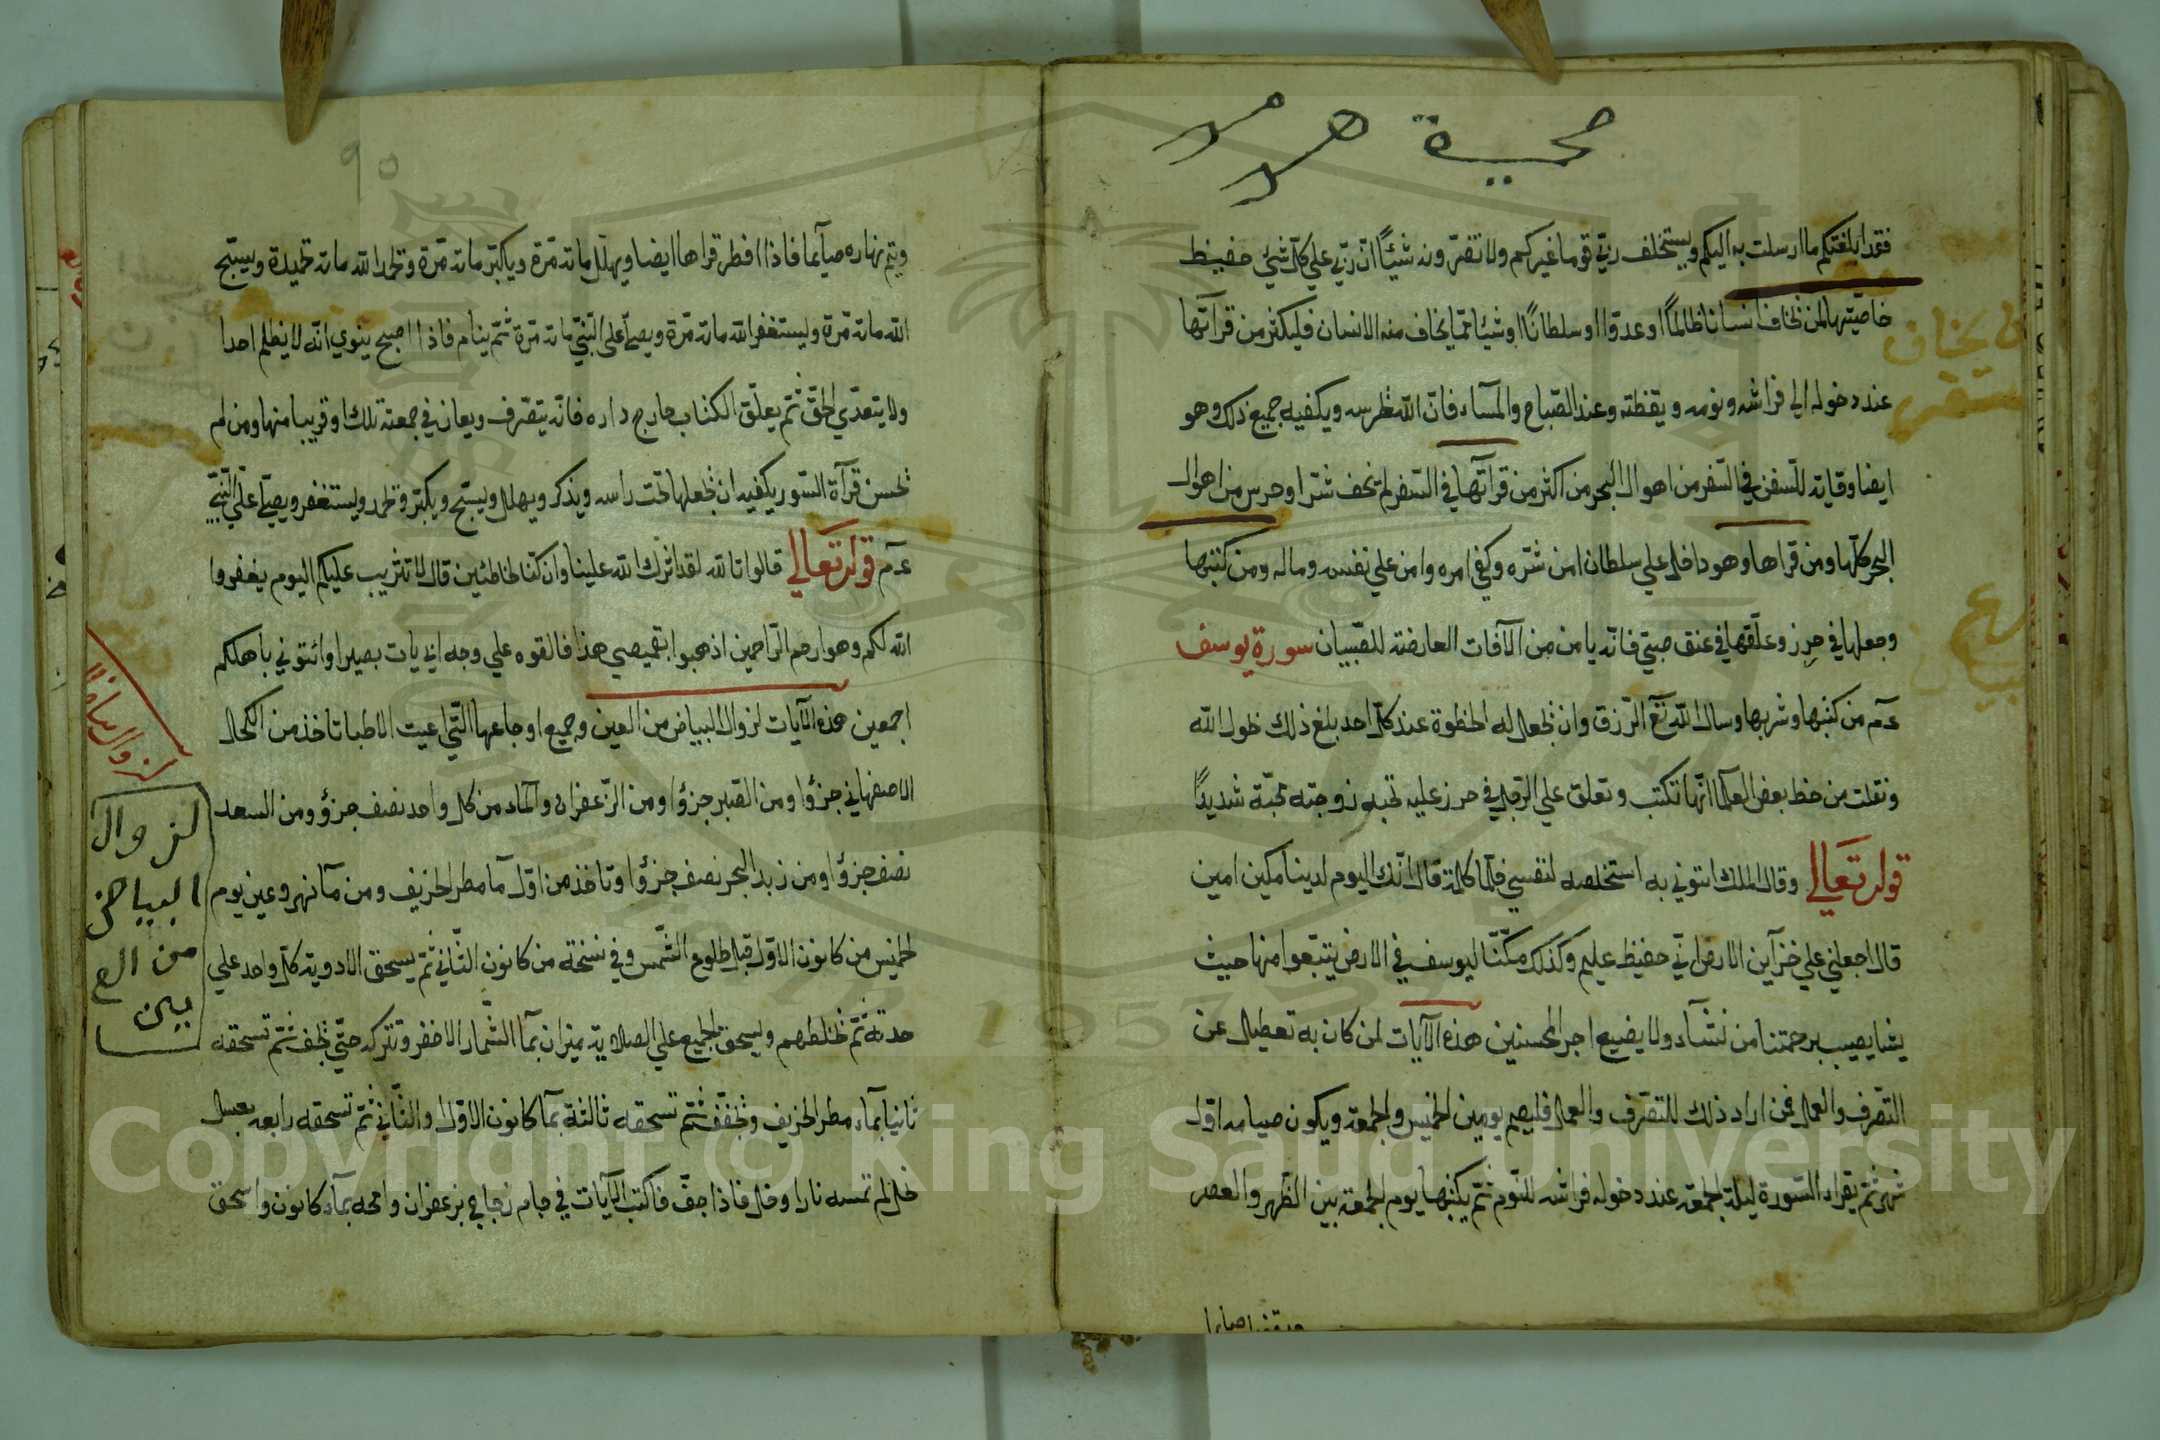 محبة هلالا
فقد ابلغتكم ما ارسلت به اليكم ويستخلف ربي قوما غيركم ولا تضرونه شيئًا ان ربي علي كل شئ حفيظ
خاصيتها لمن يخاف انسانا ظالمًا او عدوا او سلطانًا او شيئا مما يخاف منه الانسان فليكثر من قرآتها
عند دخوله الي فراشه ونومه ويقظته وعند الصباح والمسآء فان الله يحرسه ويكفيه جميع ذلك وهو
ايضا وقاية للسفن في السفر من اهوال البحر من اكثر من قرآتها في السفر لم يخف شرا وحرس من اهوال
البحر كلها ومن قراها وهو داخل علي سلطان امن شره وكفي امره وامن علي نفسه وماله ومن كتبها
وجعلها في حرز وعلقها في عنق صبي فانه يامن من الآفات العارضة للصبيان سورة يوسف
عم من كتبها وشربها وسال الله تع الرزق وان يجعل له الحظوة عند كل احد بلغ ذلك بحول الله
ونقلت من خط بعض العلما انها تكتب وتعلق علي الرجل في حرز عليه تحبه زوجته محبة شديدًا
قوله تعالي وقال الملك ائتوني به استخلصه لنفسي فلما كلمه قال انك اليوم لدينا مكين امين
قال اجعلني علي خزآين الارض اني حفيظ عليم وكذلك مكنا ليوسف في الارض يتبوا منها حيث
يشا يصيب برحمتنا من نشآء ولا يضيع اجر المحسنين هذه الآيات لمن كان به تعطيل عن
التصرف والعمل فمن اراد ذلك للتصرف والعمل فليصم يومين الخميس والجمعة ويكون صيامه اول
شهر ثم يقراء السورة ليلة الجمعة عند دخوله فراشه للنوم ثم يكتبها يوم الجمعة بين الظهر والعصر
يخاف
سفر
٩٠
ويتم نهاره صآيما فاذا افطر قراها ايضا ويهلل مائة مرة ويكبر مائة مرة وتحمد الله مائة تحميدة ويسبح
الله مائة مرة وليستغفر الله مائة مرة ويصلي علي النبي مائة مرة ثم ينام فاذا اصبح ينوي انه لا يظلم احدا
ولا يتعدي الحق ثم يعلق الكتاب خارج داره فانه يتصرف ويعان في جمعته تلك او قريبا منها ومن لم
يحسن قرآة السور يكفيه ان يجعلها تحت راسه ويذكر ويهلل ويسبح ويكبر ويحمد ويستغفر ويصلي علي النبي
عم قوله تعالي قالوا تالله لقد اثرك الله علينا وان كنا لخاطئين قال لا تثريب عليكم اليوم يغفروا
الله لكم وهو ارحم الراحمين اذهبوا بقميصي هذا فالقوه علي وجه ابي يات بصيرا وائتوني باهلكم
اجمعين هذه الآيات لزوال البياض من العين وجميع اوجاعها التي اعيت الاطبا تاخذ من الكحل
الاصفهاني جزؤا ومن الصبر جزؤا ومن الزعفران والمآء من كل واحد نصف جزؤ ومن السعد
نصف جزؤا ومن زبد البحر نصف جزؤا وتاخذ من اول مآ مطر الخريف ومن مآ نهر وعين يوم
الخميس من كانون الاول قبل طلوع الشمس وفي نسخة من كانون الثاني ثم يسحق الادوية كل واحد علي
حدته ثم تخلطهم ويسحق الجميع علي الصلاية بميزان بمآ الشمار الاخضر وتتركه حتي يجف ثم تسحقه
ثانيا بمآء مطر الخريف وتجفف ثم تسحقه ثالثة بمآ كانون الاول والثاني ثم تسحقه رابعه بعسل
نحل لم تمسه نارا وخل فاذا جف فاكتب الآيات في جام زجاج بزعفران وامحه بمآء كانون واسحق
لزوال
البياض
من الع
ين
Copyright © King Saud University
1957